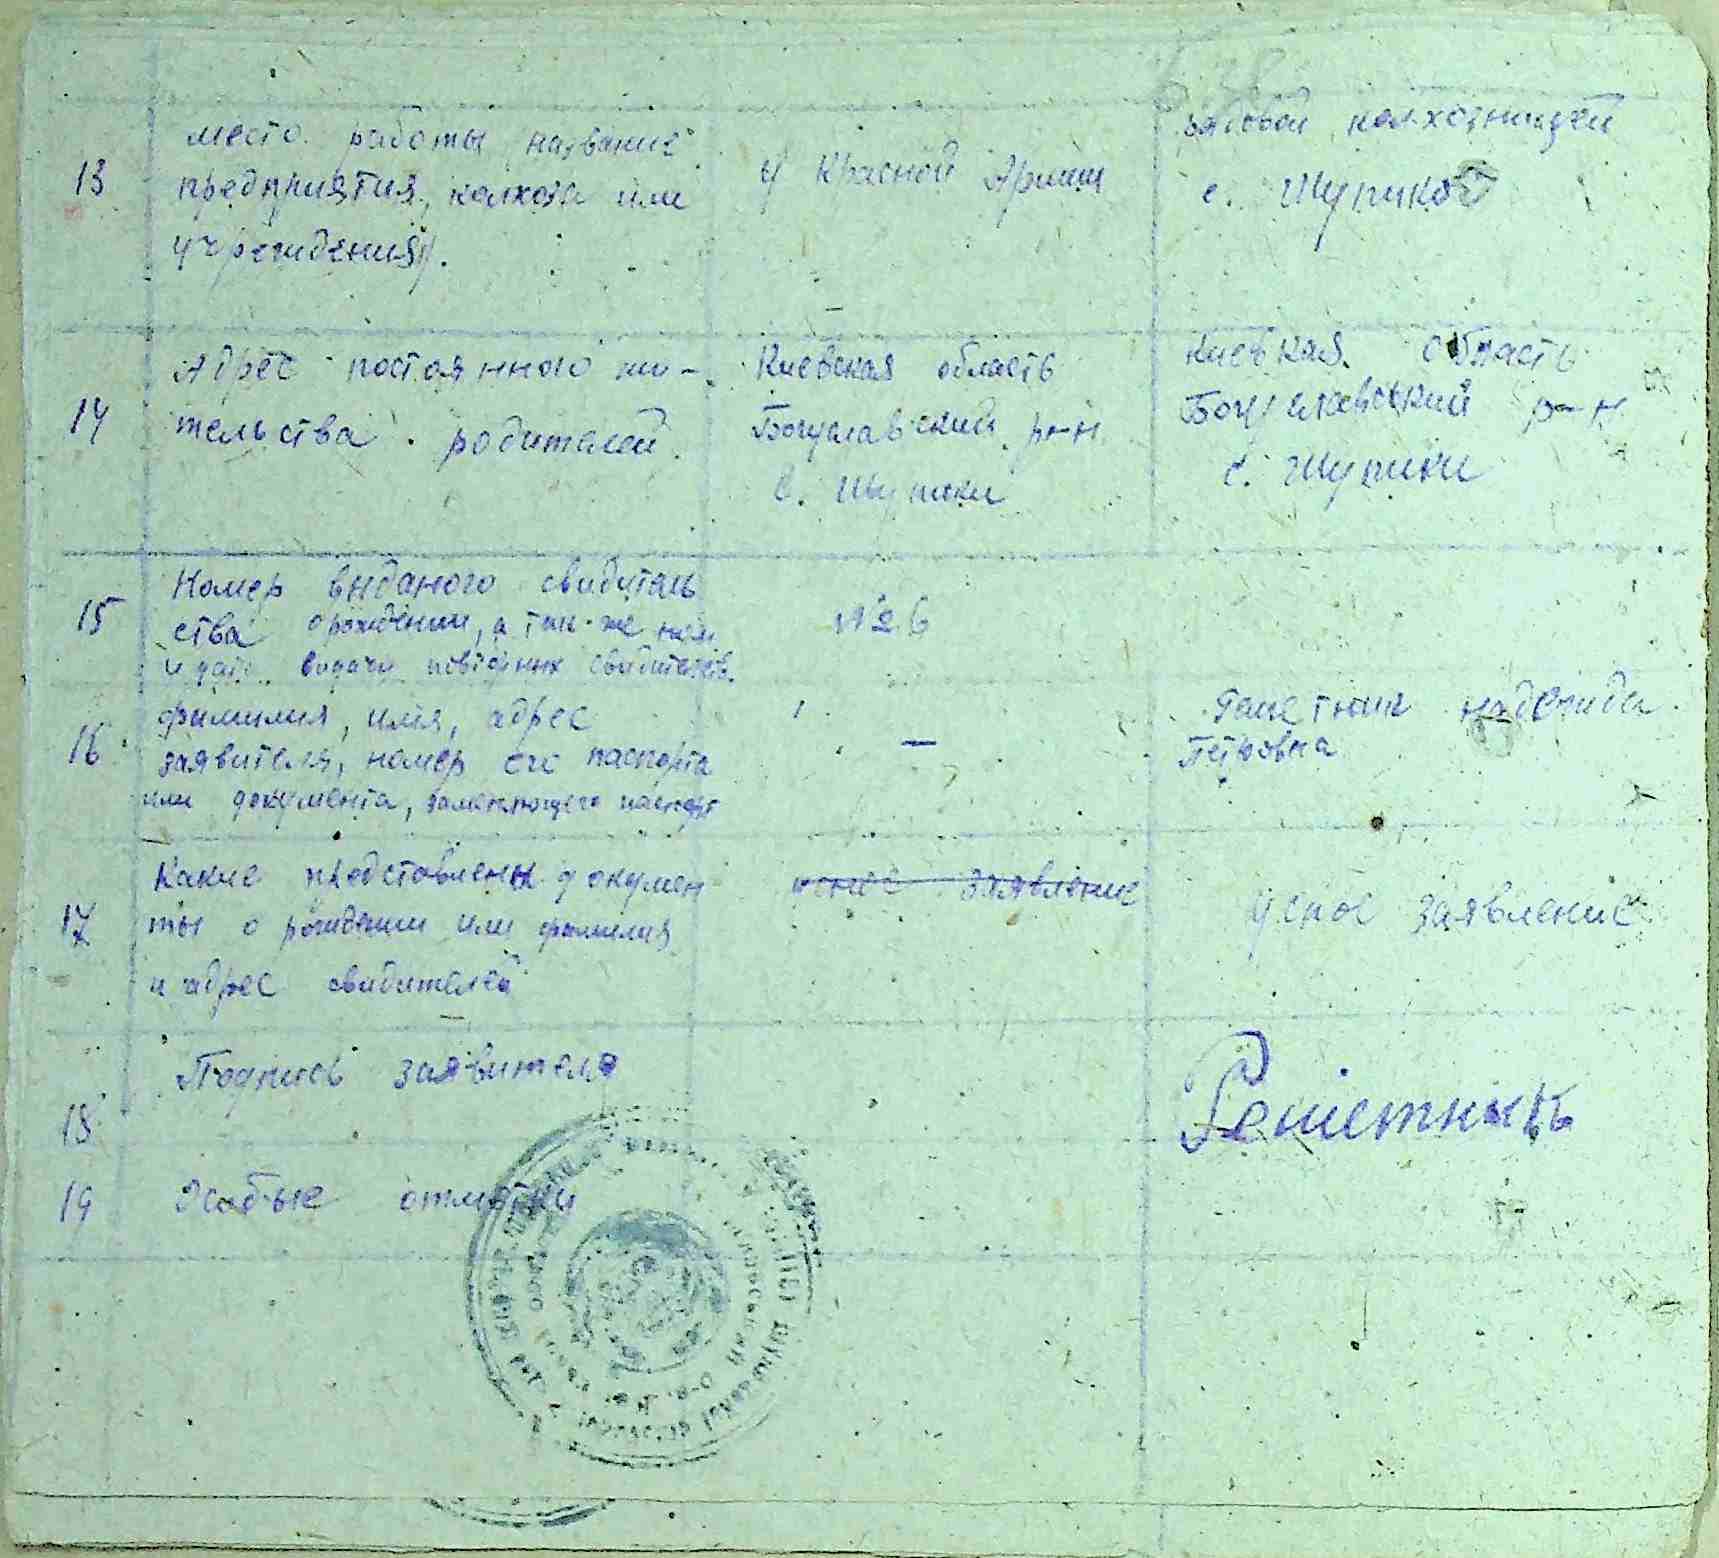 место работы (название
13 предприятия, колхоза или
учреждения).
у Красной Армии
рядовой колхозницей
с. Шупиков
Адрес постоянного жи-
14 тельства родителей.
Киевская область
Богуславский р-н
с. Шупики
Киевкая область
Богуславський р-н
с. Шупики
Номер выданого свидетель
15 ства орождении, а так-же ном
и дата видачи повторных свидетельств.
№ 6
фамилия, имя, адрес
16 заявителя, номер его паспорта
или документа, заменяющего паспорт
—
Решетник Надежда
Петровна
Какие представлены докумен
17 ты о рождении или фамилия
и адрес свидетелей
усное заявление
усное заявление
18 Подпись заявителя
Решетнык
19 Особые отметки